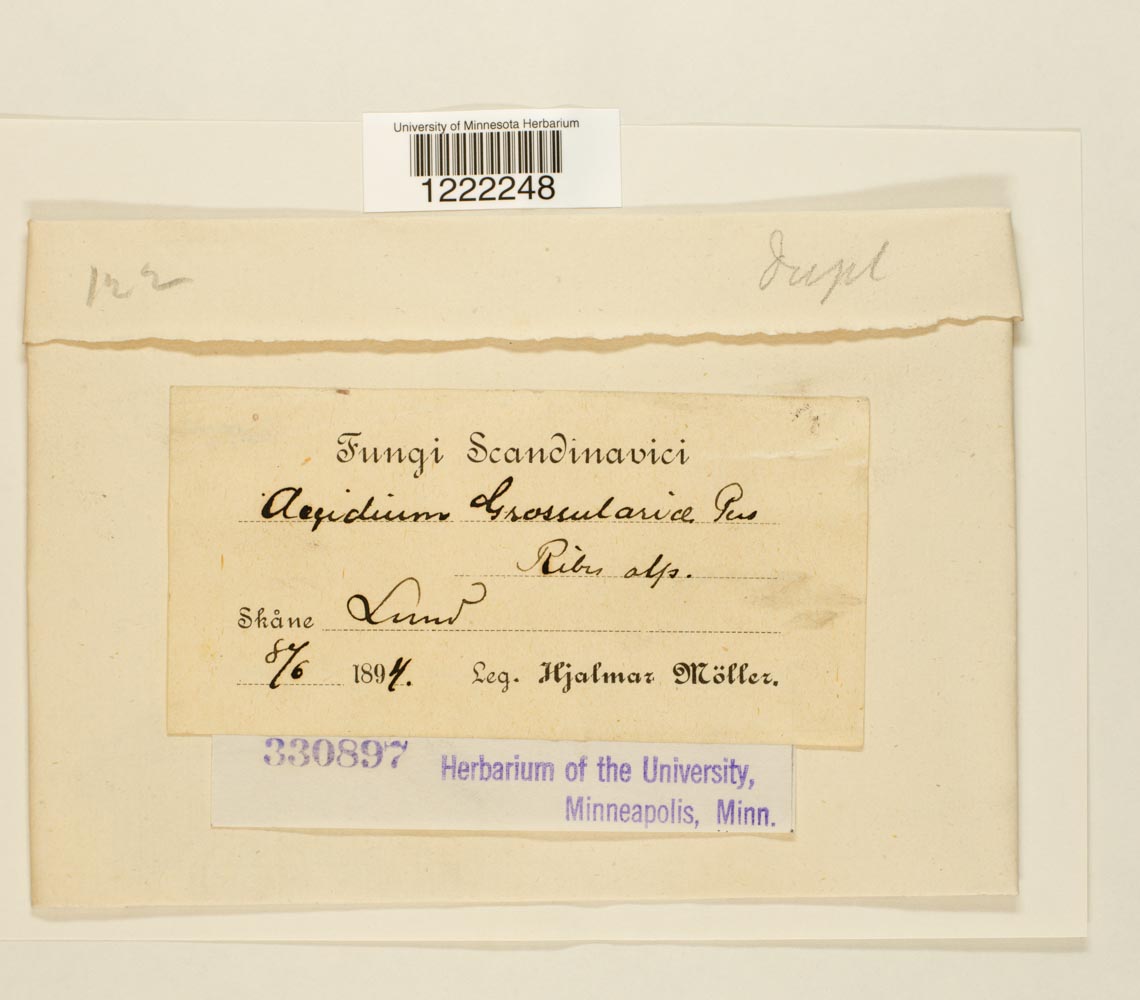 University of Minnesota Herbarium
1222248
122
dupl
Fungi Scandinavici
Aecidium Grossulariæ Pers
Ribes alp.
Skåne Lund
8/6 1894. Leg. Hjalmar Möller.
330897
Herbarium of the University,
Minneapolis, Minn.